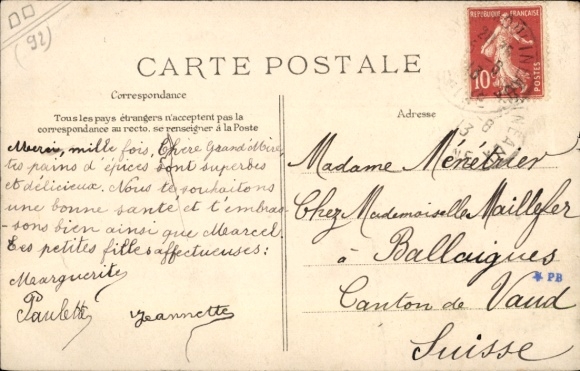 (92)
RÉPUBLIQUE FRANÇAISE
10
POSTES
CARTE POSTALE
Correspondance
Tous les pays étrangers n'acceptent pas la
correspondance au recto. se renseigner à la Poste
Merci, mille fois, Chère Grand'Mère,
tes pains d'épices sont superbes
et délicieux. Nous te souhaitons
une bonne santé et t'embras-
-sons bien ainsi que Marcel.
Tes petites filles affectueuses:
Marguerite
Paulette
Jeannette
Adresse
Madame Ménétrier
Chez Mademoiselle Maillefer
à Ballaigues
Canton de Vaud
Suisse
PB